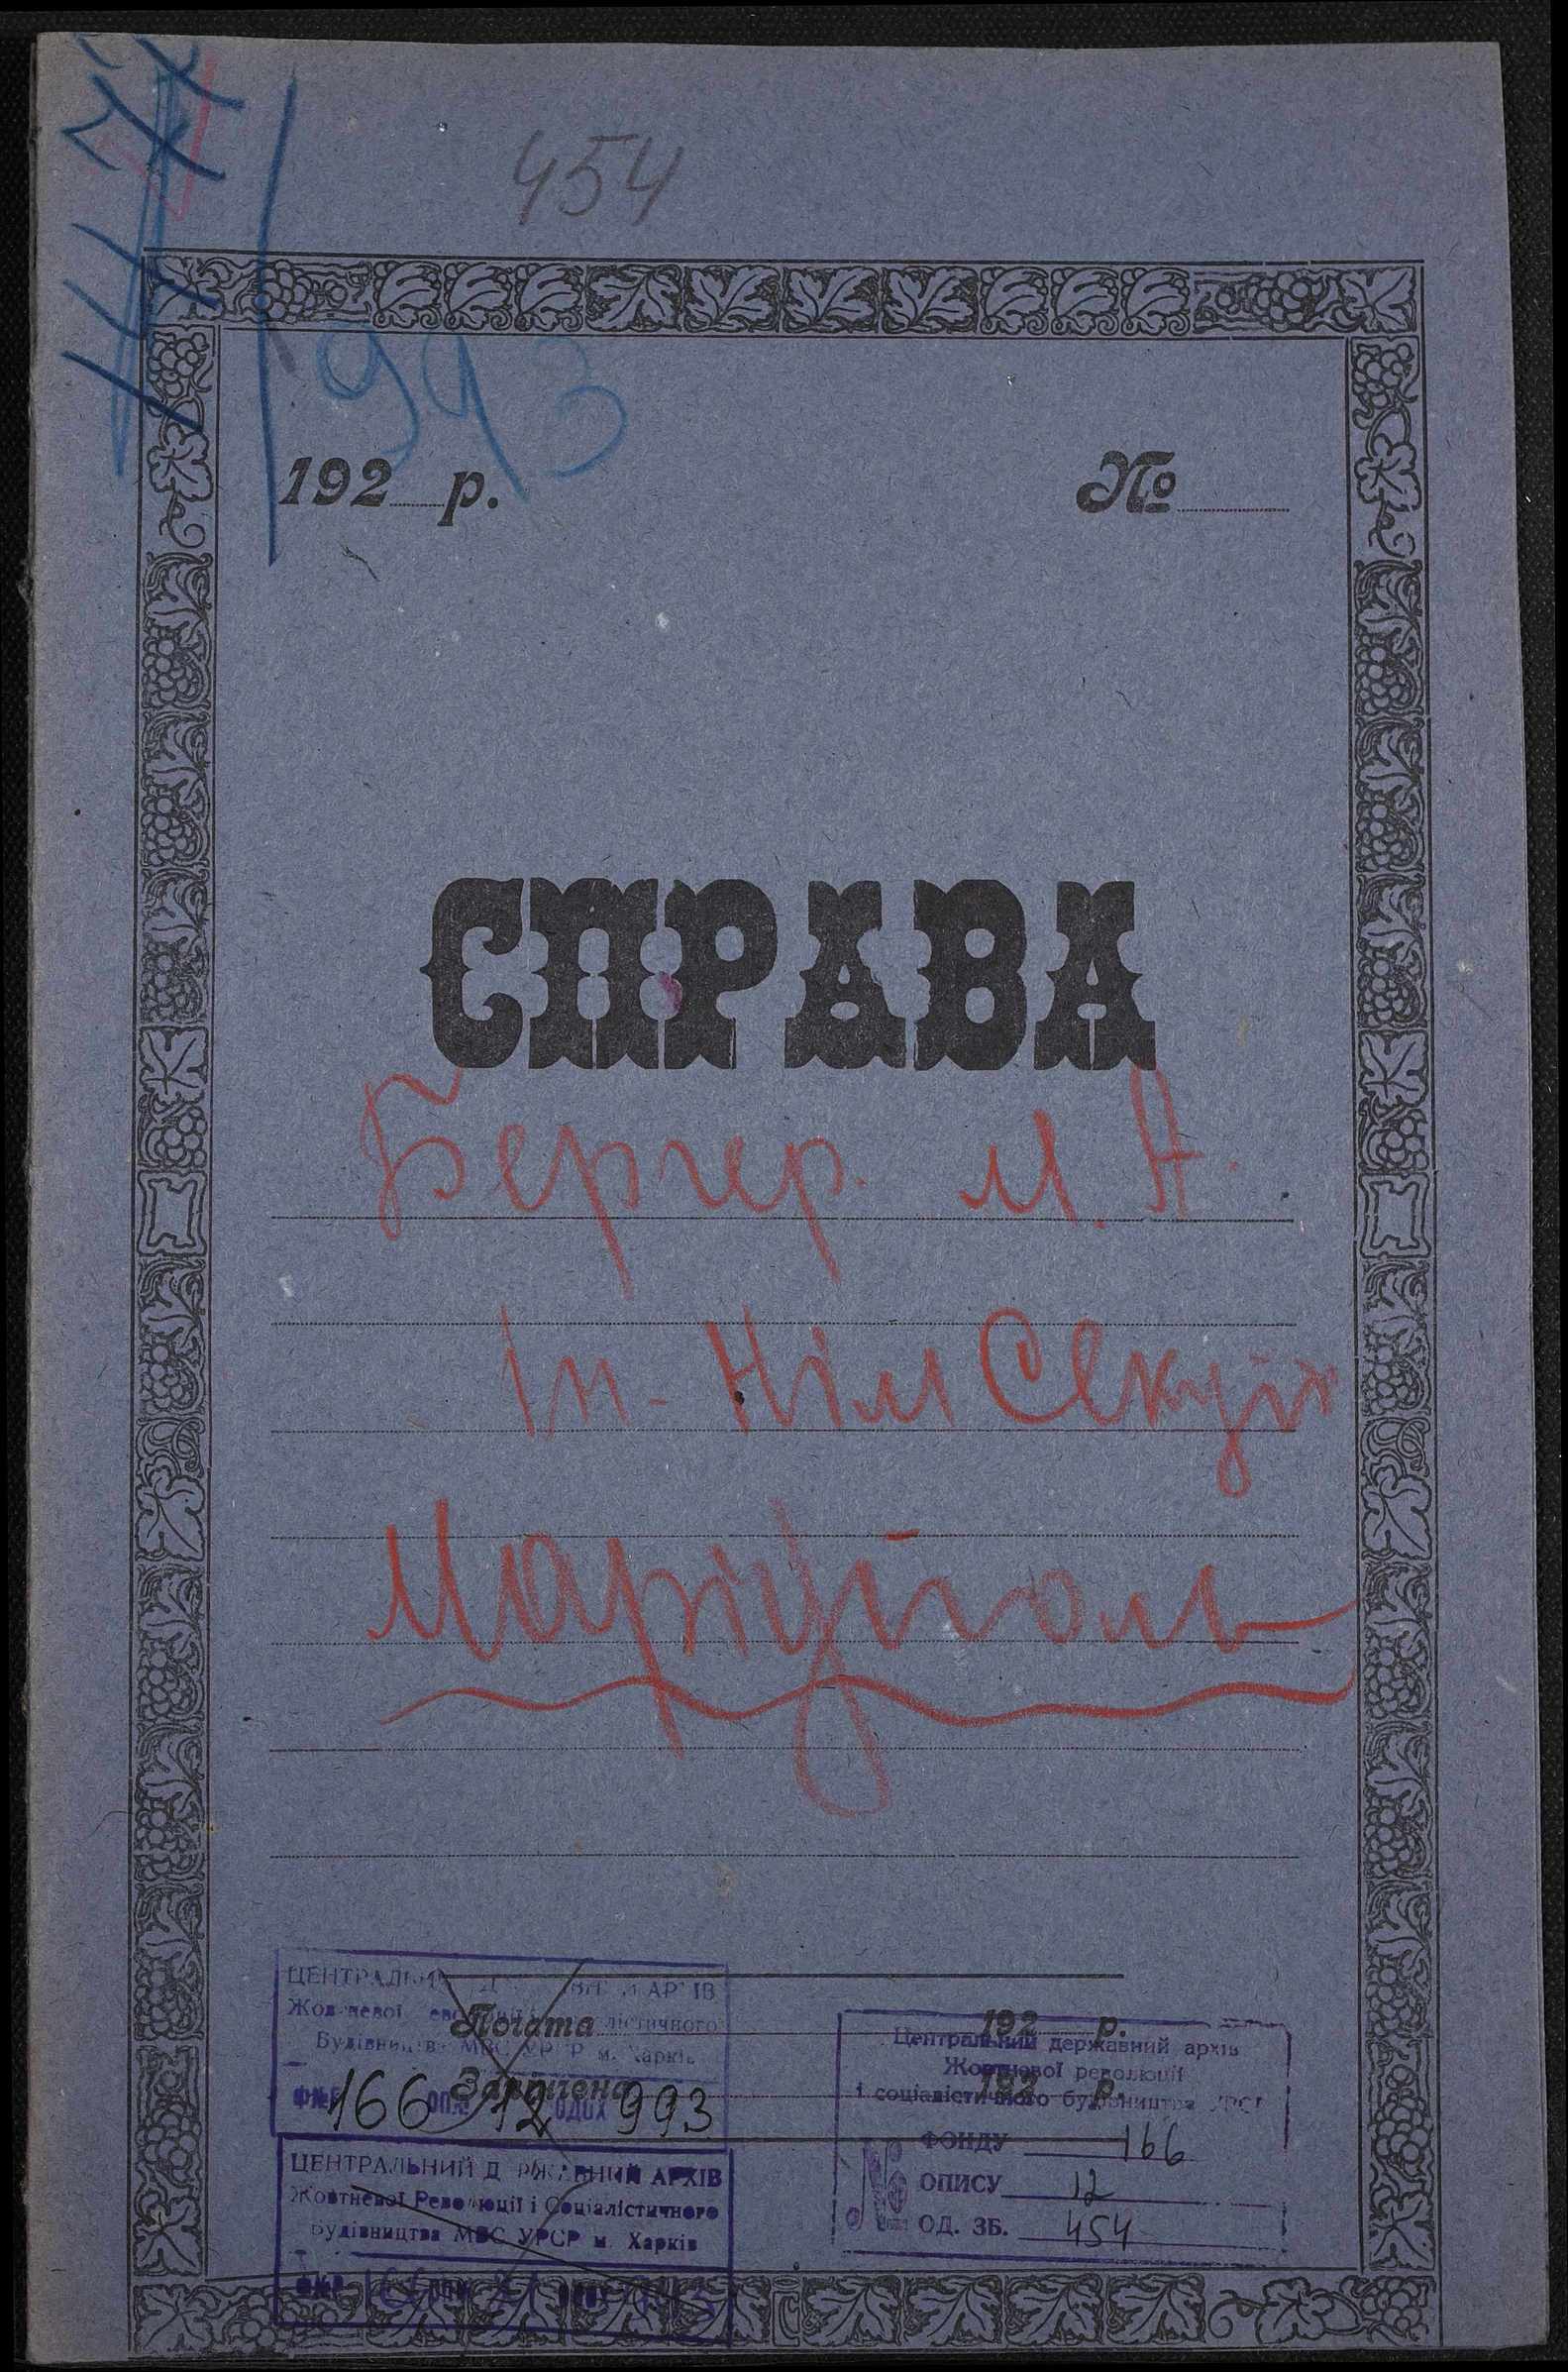 454
993
192 р. №
СПРАВА
Бергер. М. А.
Ін-Нім Секція
Маріуполь
ЦЕНТРАЛЬНИЙ АРХІВ
Жовтневої лістичного
Будівництва МВС УРСР м. Харків
Почата 192 р.
Зарічена 192 р.
166 оп. № 12 одох 993
ЦЕНТРАЛЬНИЙ ДЕРЖАВНИЙ АРХІВ
Жовтневої Революції і Соціалістичного
Будівництва МВС УРСР м. Харків
Центральний державний архів
Жовтневої революції
і соціалістичного будівництва УРСР
№ ФОНДУ 166
ОПИСУ 12
ОД. ЗБ. 454